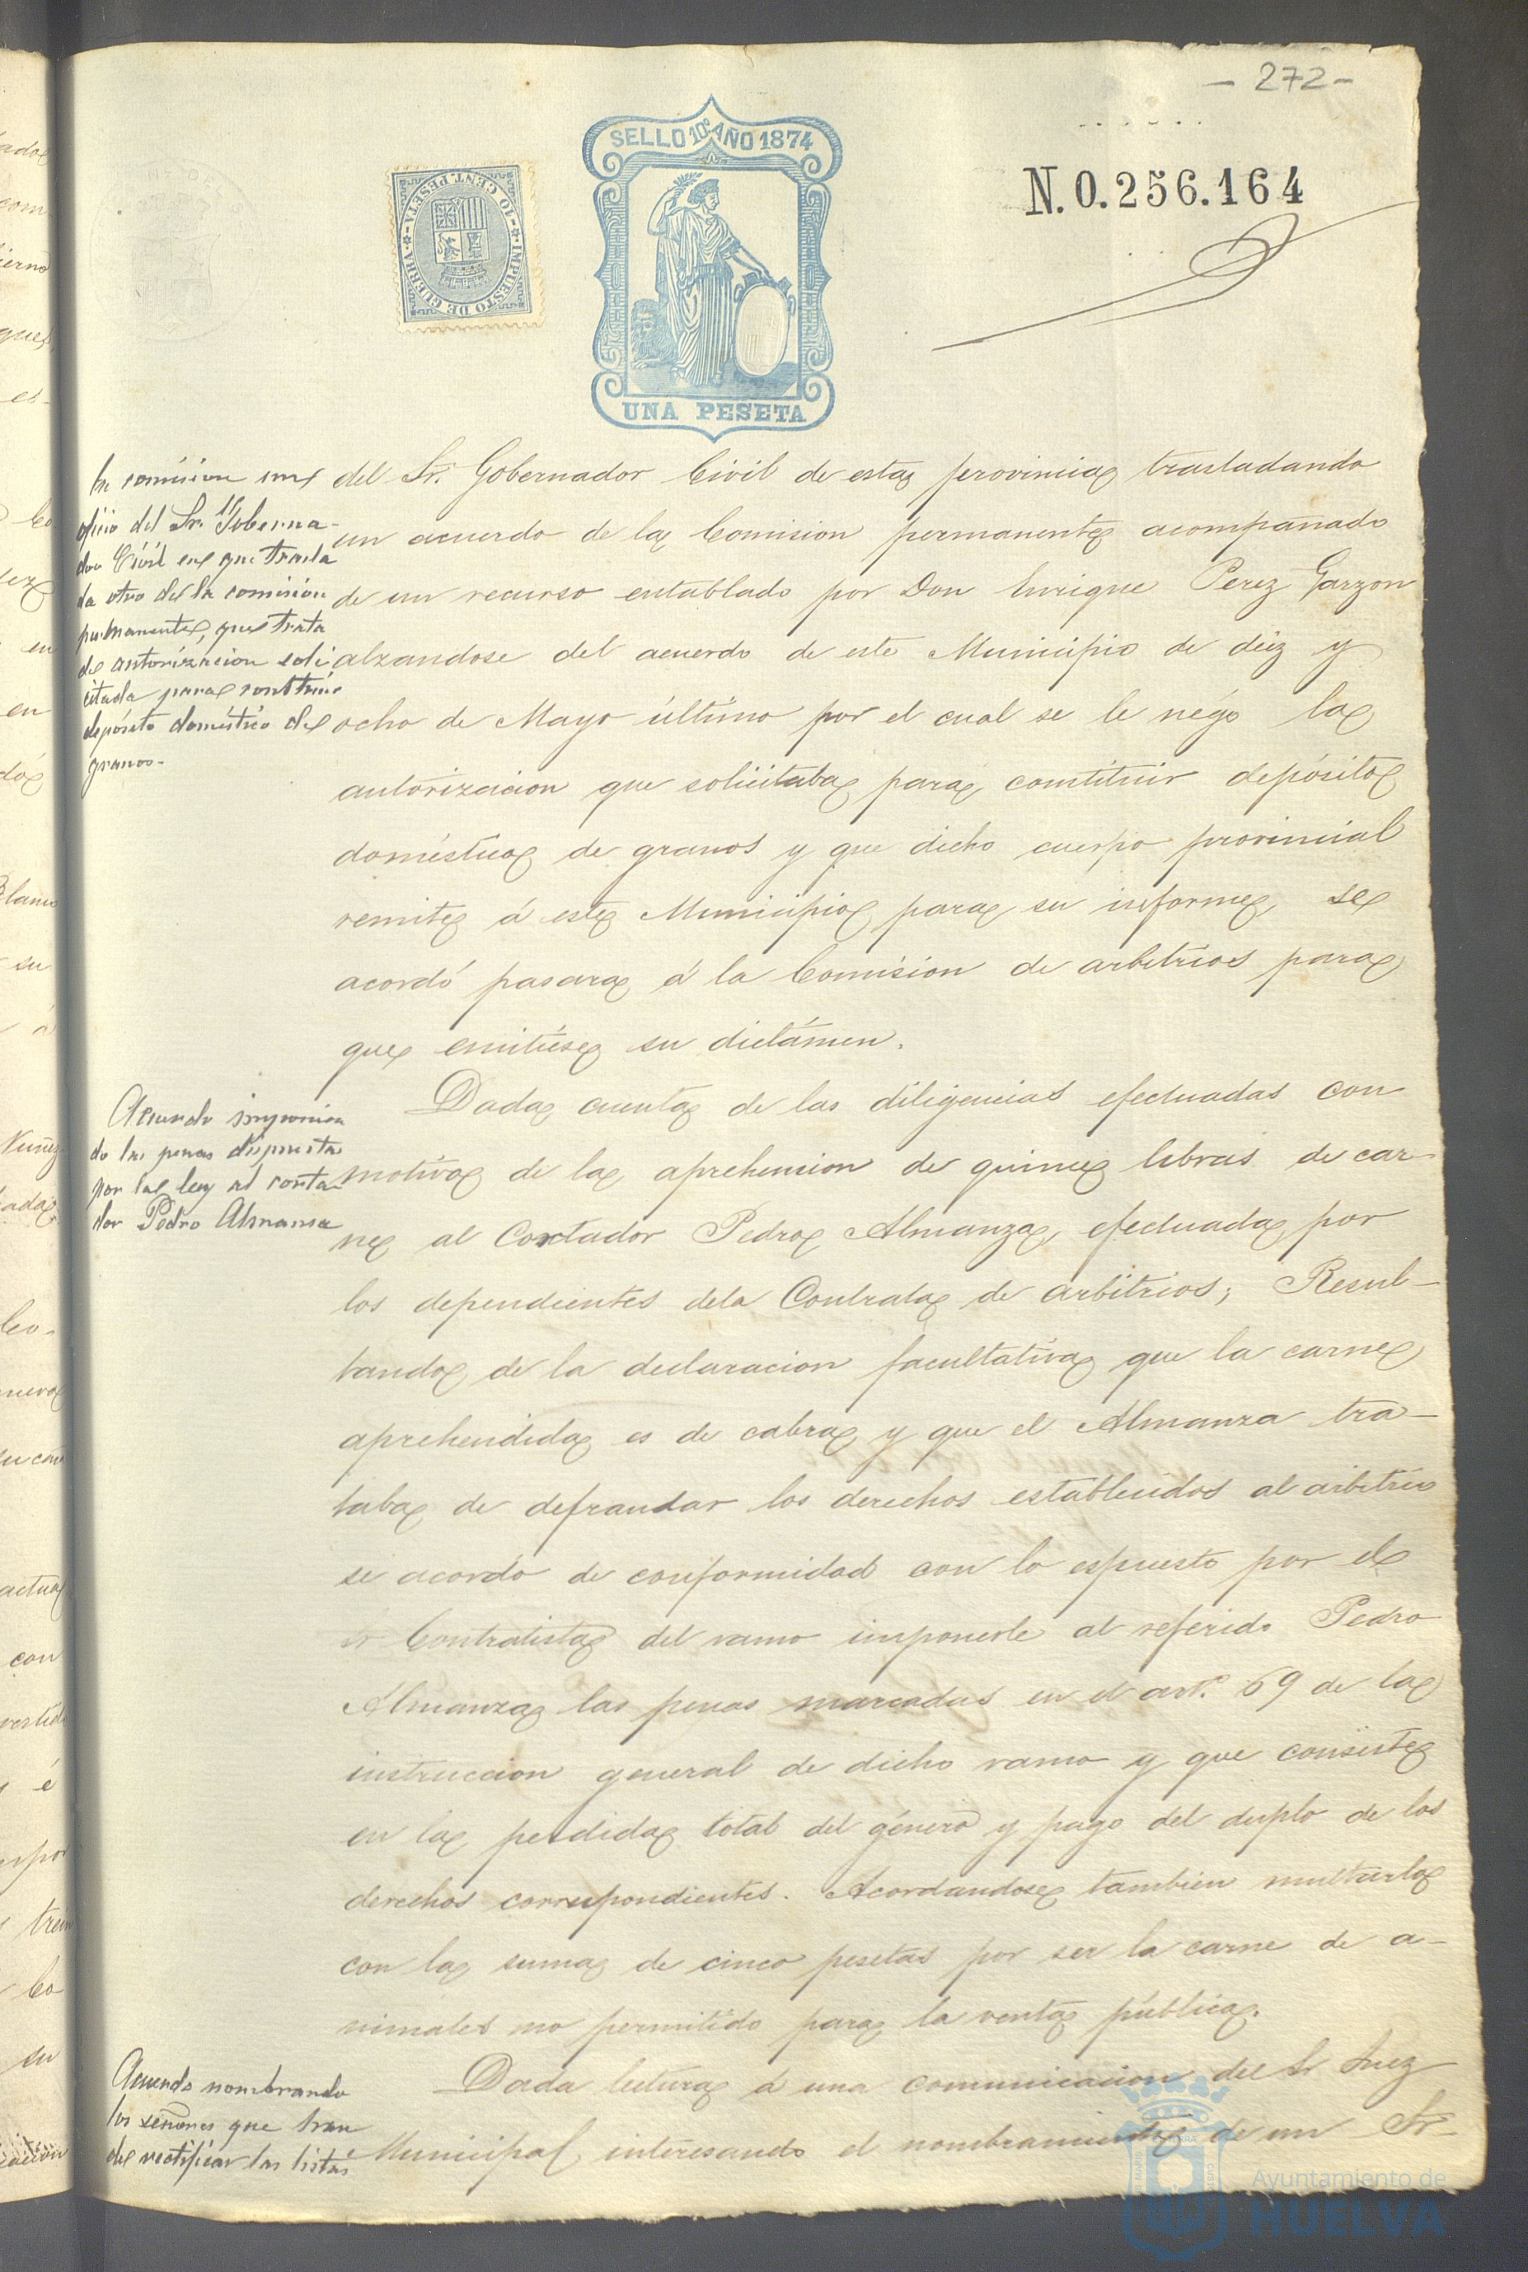 - 272 -
SELLO 10º AÑO 1874
10 CENT. PESETA
IMPUESTO DE GUERRA
N.0.256.164
UNA PESETA
á comision un
oficio del Sr. Goberna-
dor Civil en que trasla
da otro de la comision
permanente, que trata
de autorizacion soli
citada para constituir
depósito doméstico de
granos.-
del Sr. Gobernador Civil de esta provincia trasladando
un acuerdo de la Comision permanente acompañado
de un recurso entablado por Don Enrique Perez Garzon
alzandose del acuerdo de este Municipio de diez y
ocho de Mayo último por el cual se le négo la
autorizacion que solicitaba para constituir depósito
doméstico de granos y que dicho cuerpo provincial
remite á este Municipio para su informe, se
acordó pasara á la Comision de arbitrios para
que emitiese su dictámen.
Acuerdo imponien
do las penas dispuestas
por la ley al corta
dor Pedro Almansa
Dada cuenta de las diligencias efectuadas con
motivo de la aprehension de quince libras de car-
ne al Cortador Pedro Almanza, efectuada por
los dependientes dela Contrata de arbitrios; Resul-
tando de la declaracion facultativa que la carne
aprehendida es de cabra y que el Almanza tra-
taba de defraudar los derechos establecidos al arbitrio
se acordo de conformidad con lo espuesto por el
Sr Contratista del ramo imponerle al referido Pedro
Almanza las penas marcadas en el artº. 69 de la
instruccion general de dicho ramo y que consiste
en la perdida total del género y pago del duplo de los
derechos correspondientes. Acordandose tambien multarlo
con la suma de cinco pesetas por ser la carne de a-
nimales no permitido para la venta pública.
Acuerdo nombrando
los señores que han
de rectificar las listas
Dada lectura á una comunicacion del Sr Juez
Municipal interesando el nombramiento de un Sr.
Ayuntamiento de
HUELVA